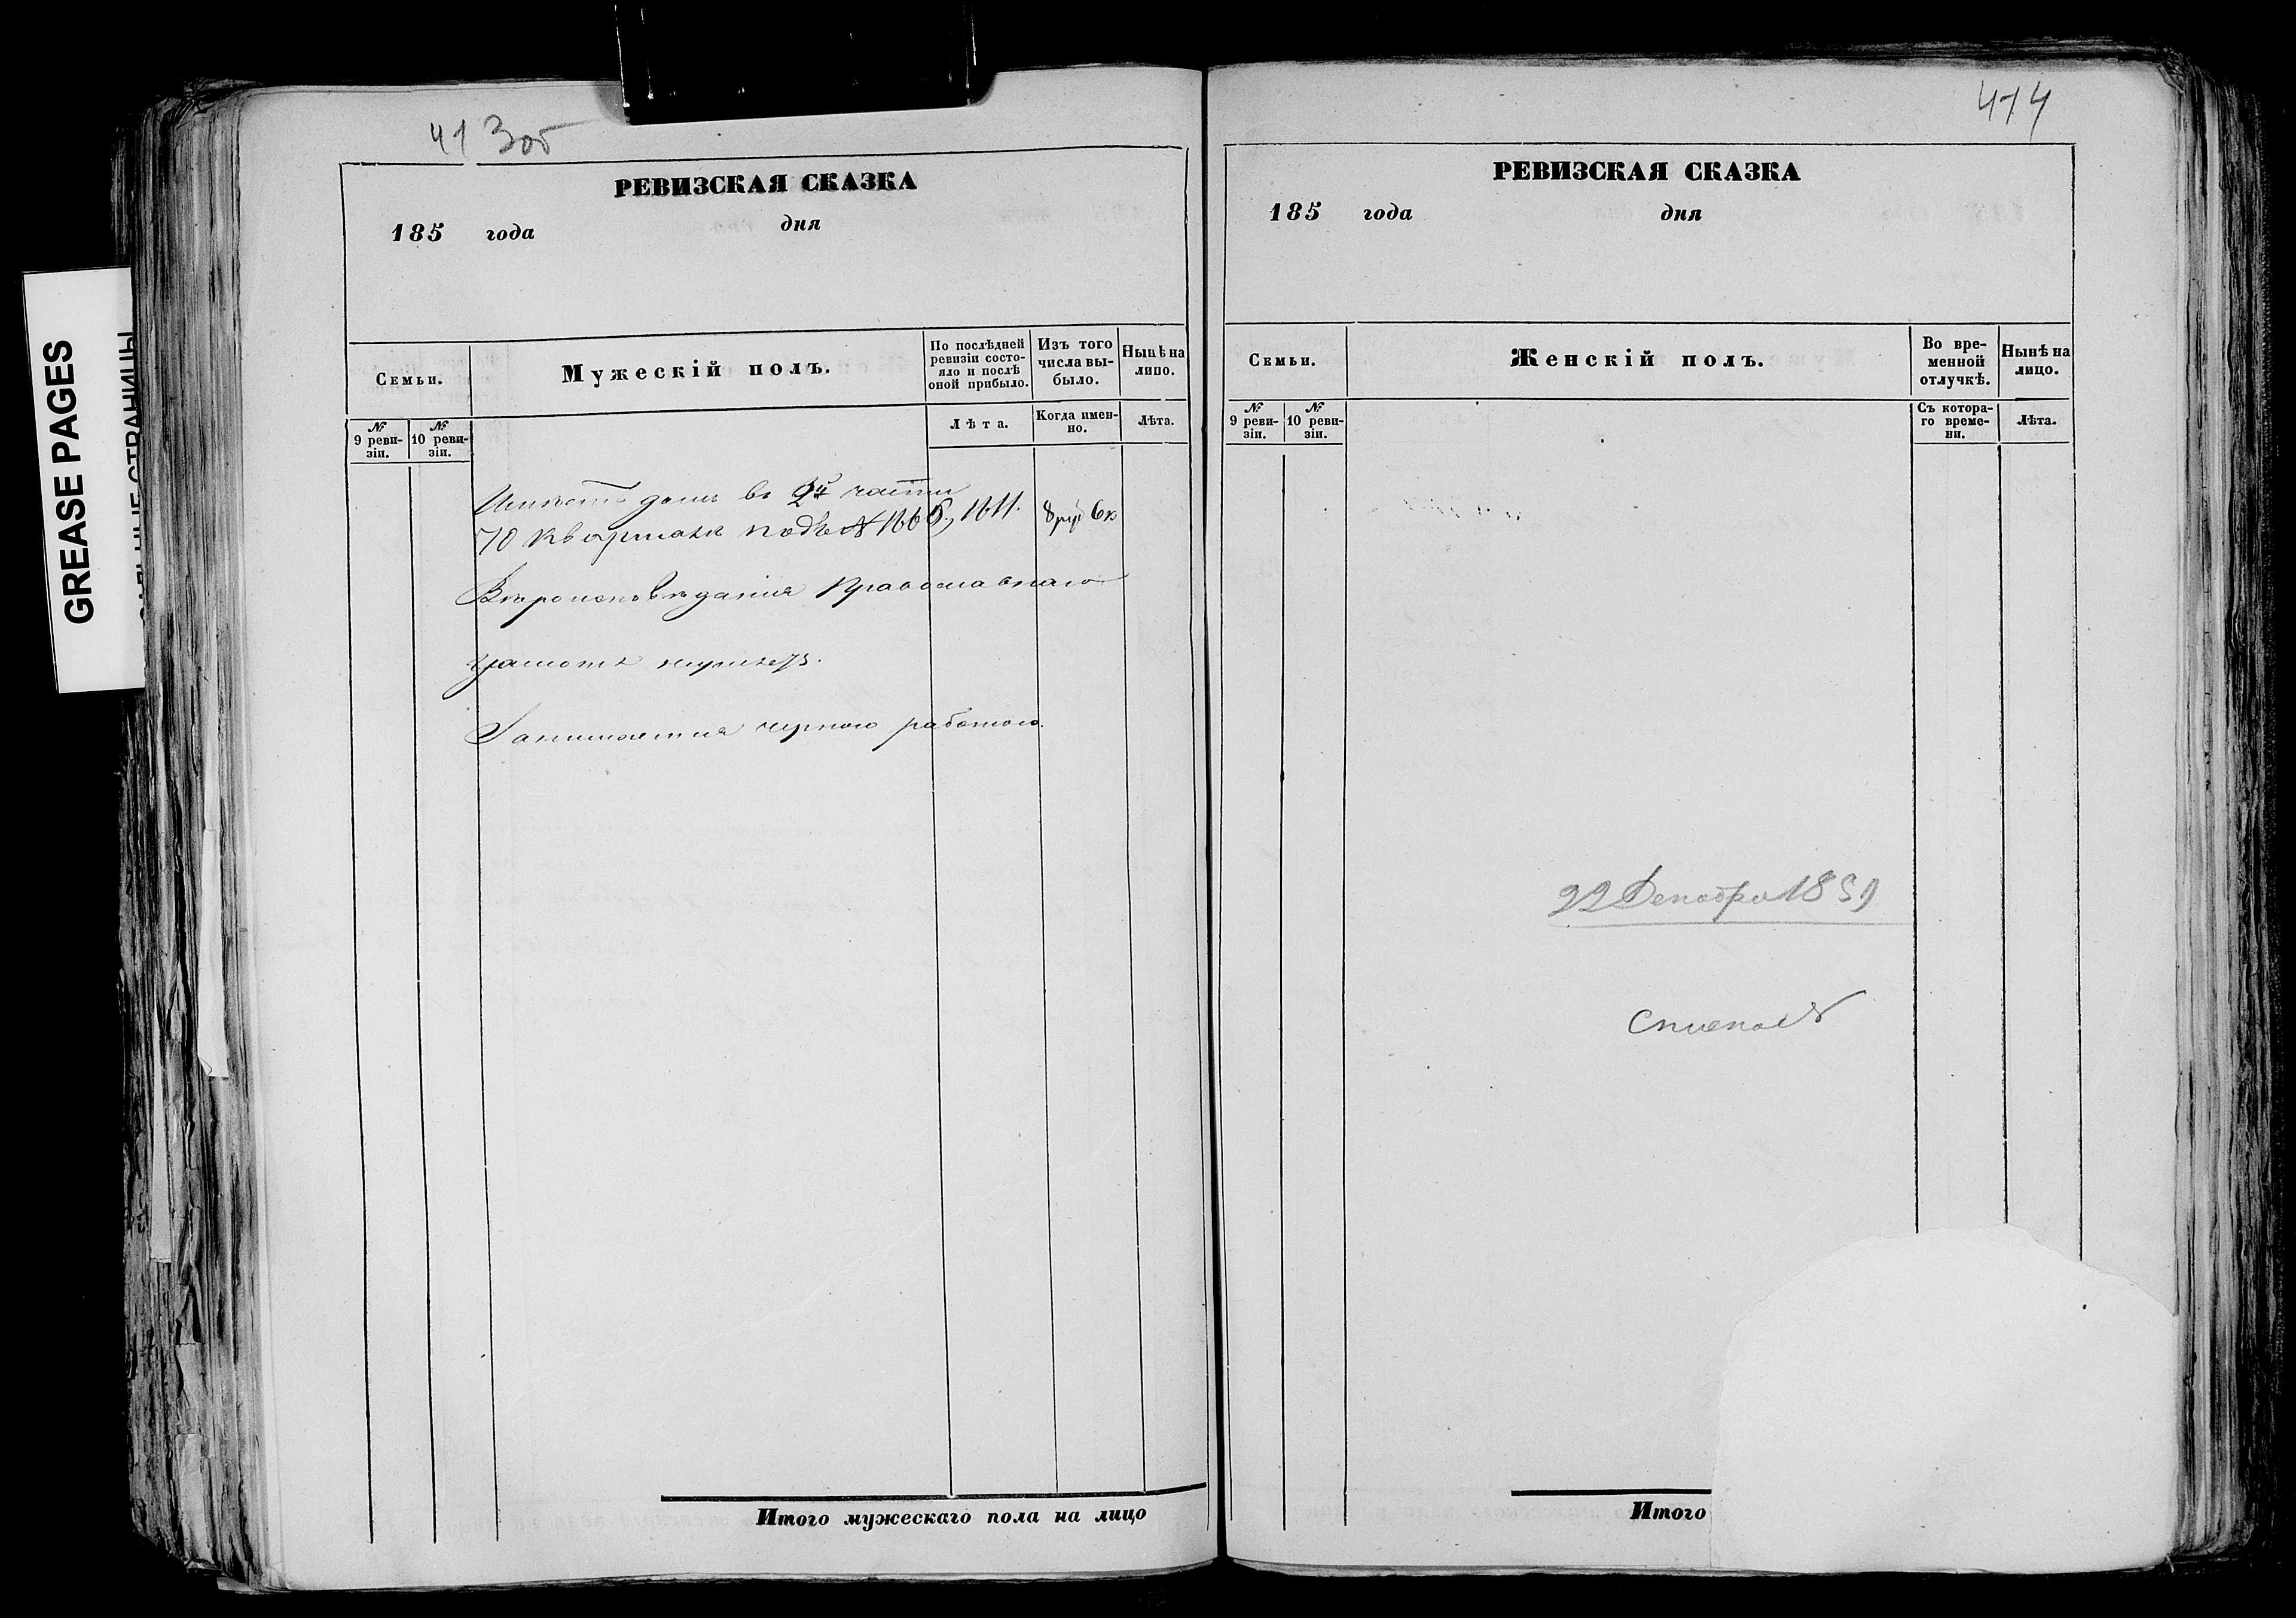 GREASE PAGES
413 об
РЕВИЗСКАЯ СКАЗКА
185 года дня
Семьи.
Мужескій полъ.
По послѣдней ревизіи состо-
яло и послѣ оной прибыло.
Изъ того числа вы-
было.
Нынѣ на лицо.
№ 9 реви-
зіи.
№ 10 реви-
зіи.
Лѣта.
Когда имен-
но.
Лѣта.
Имѣетъ домъ въ 2й части
кварталѣ подъ №
Вѣроисповѣданія Православнаго
грамотѣ
Занимается черною работою.
Итого мужескаго пола на лицо
414
РЕВИЗСКАЯ СКАЗКА
185 года дня
Семьи.
Женскій полъ.
Во вре-
менной
отлучкѣ.
Нынѣ на
лицо.
№ 9 реви-
зіи.
№ 10 реви-
зіи.
Съ котора-
го време-
ни.
Лѣта.
22 Декабря
Итого